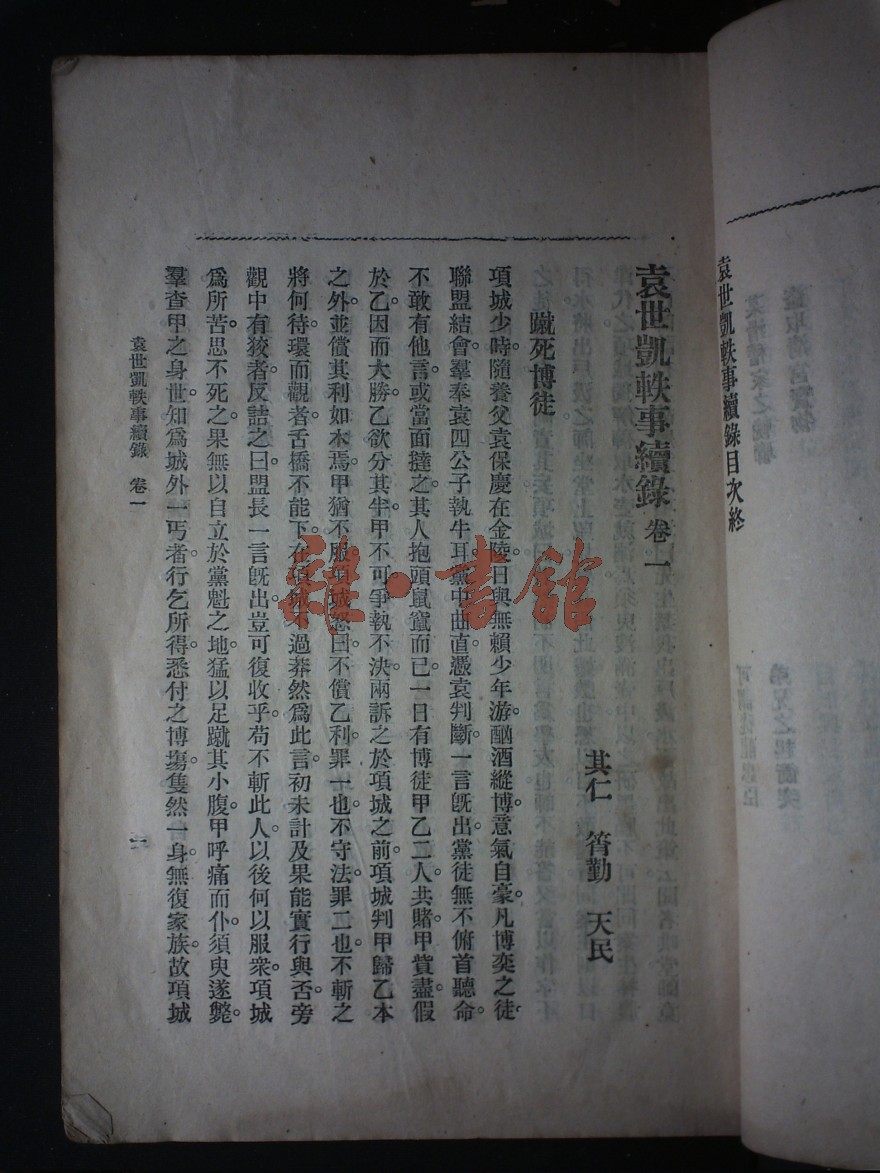 袁世凱軼事續錄目次終
袁世凱軼事續錄 卷一
其仁 筲勤 天民
蹴死博徒
項城少時隨養父袁保慶在金陵日與無賴少年游酗酒縱博意氣自豪凡博奕之徒
聯盟結會羣奉袁四公子執牛耳黨中曲直憑袁判斷一言旣出黨徒無不俯首聽命。
不敢有他言或當面撻之其人抱頭鼠竄而已一日有博徒甲乙二人共賭甲貲盡假
於乙因而大勝乙欲分其半甲不可爭執不決兩訴之於項城之前項城判甲歸乙本
之外並償其利如本焉甲猶不服項城怒曰不償乙利罪一也不守法罪二也不斬之
將何待環而觀者舌橋不能下在項城不過莽然爲此言初未計及果能實行與否旁
觀中有狡者反詰之曰盟長一言旣出豈可復收乎苟不斬此人以後何以服衆項城
爲所苦思不死之果無以自立於黨魁之地猛以足蹴其小腹甲呼痛而仆須臾遂斃。
羣查甲之身世知爲城外一丐者行乞所得悉付之博塲隻然一身無復家族故項城
袁世凱軼事續錄 卷一
一
雜·書館